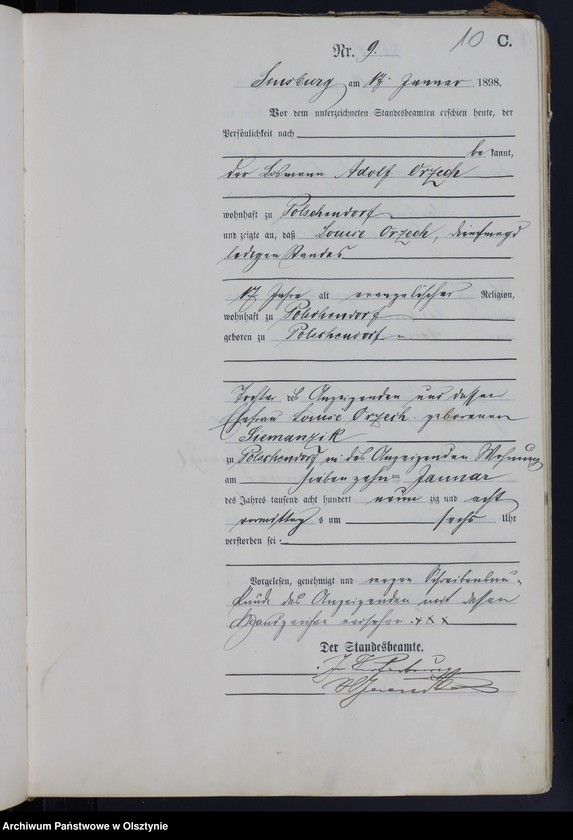 10 C.
Nr. 9.
Sensburg am 17. Januar 1898.
Vor dem unterzeichneten Standesbeamten erschien heute, der
Persönlichkeit nach
be kannt,
der Losmann Adolf Orzech
wohnhaft zu Polschendorf
und zeigte an, daß Louise Orzech, Dienstmagd
ledigen Standes
17 Jahre alt evangelischer Religion,
wohnhaft zu Polschendorf
geboren zu Polschendorf
Tochter des Anzeigenden und dessen
Ehefrau Louise Orzech geborenen
Siemanzik
zu Polschendorf in des Anzeigenden Wohnung
am siebenzehnten Januar
des Jahres tausend acht hundert neun zig und acht
vormittags um sechs Uhr
verstorben sei.
Vorgelesen, genehmigt und wegen Schreibensun-
kunde des Anzeigenden mit dessen
Handzeichen versehen +++
Der Standesbeamte.
Archiwum Państwowe w Olsztynie